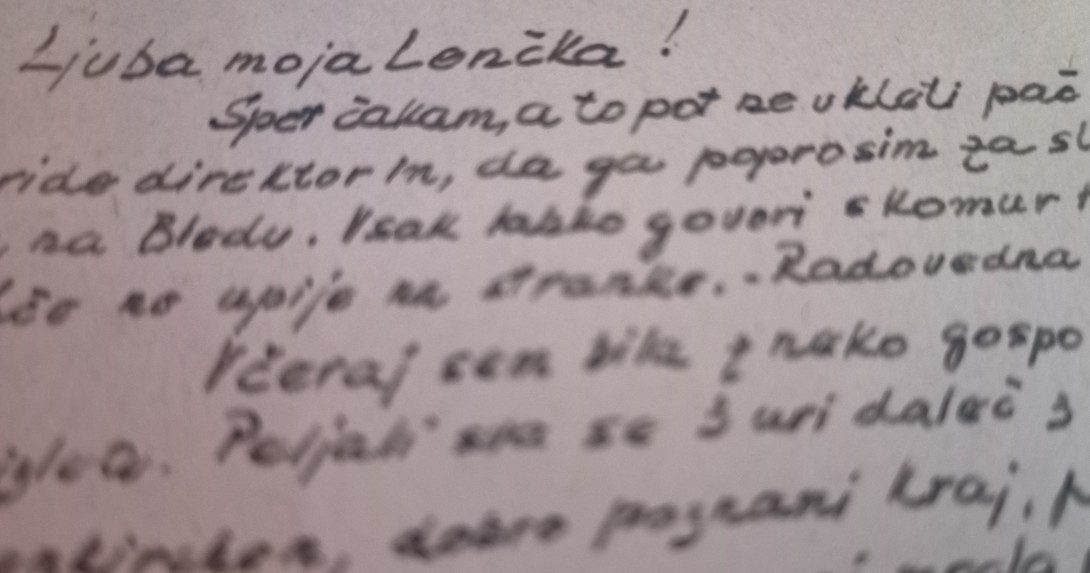 Ljuba moja Lenčka!
Spet čakam, a to pot ne v kleti pač
ride direktor in, da ga poprosim za sl
na Bledu. Vsak lahko govori s komur
ne upije na stranke. - Radovedna
Včeraj sem bila z neko gospo
Peljali sva se 3 uri daleč
dobro poznani kraj,